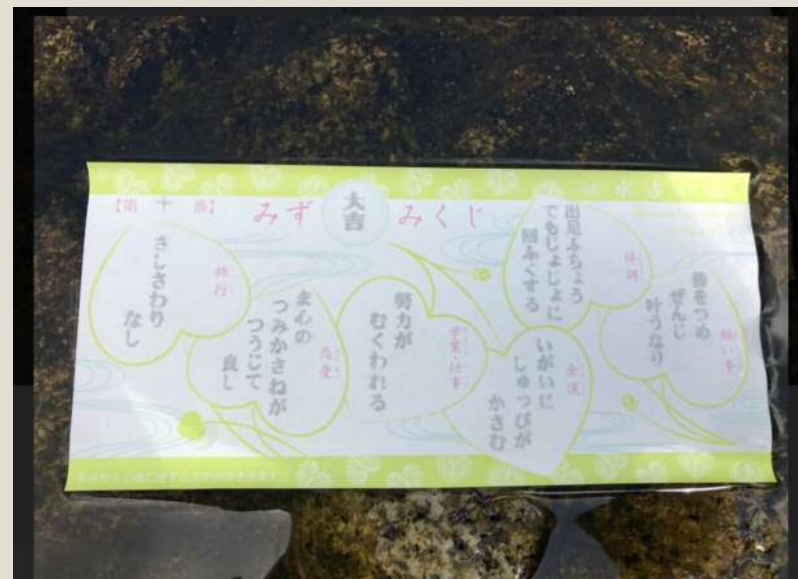 水占
みず
大吉
みくじ
【第十番】
願い事
善をつめ
ぜんじ
叶うなり
体調
出足ふちょう
でもじょじょに
回ふくする
金運
いがいに
しゅっぴが
かさむ
学業・仕事
努力が
むくわれる
恋愛
まごころの
つみかさねが
つうじて
良し
旅行
さしさわり
なし